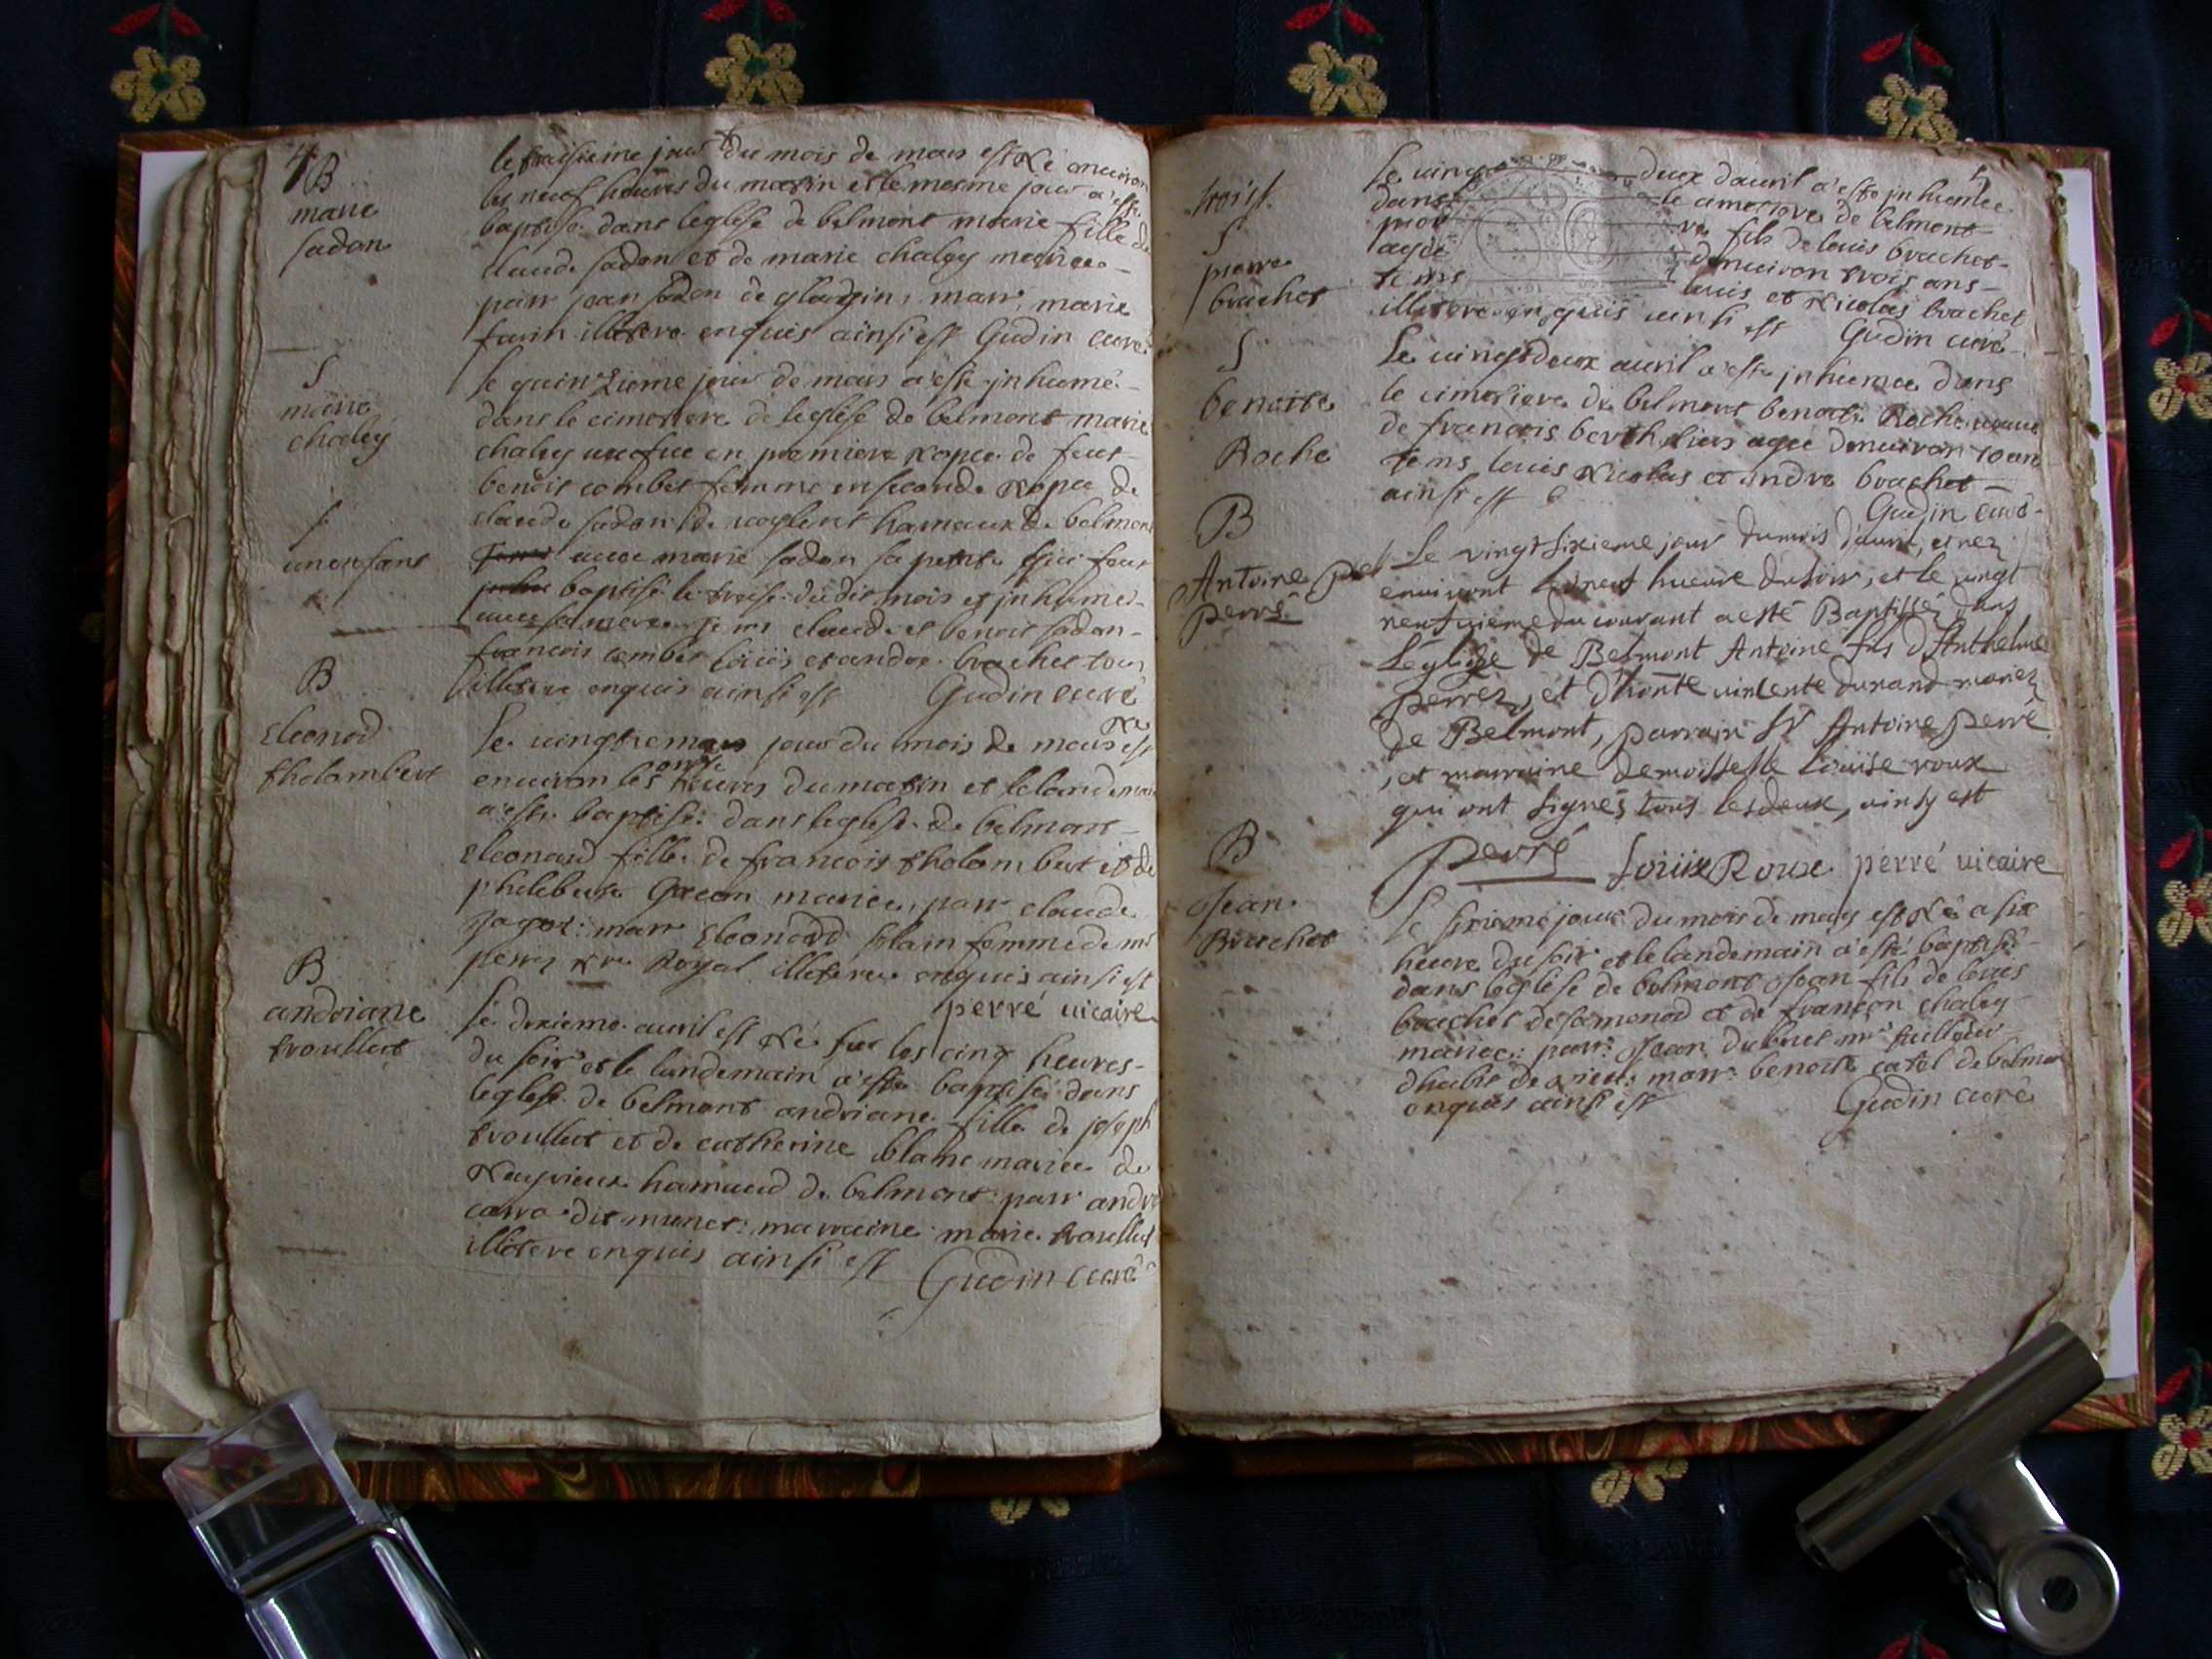 4
B
marie
sadon
le traisieme jour du mois de mars est né enuiron
les neuf heures du matin et le mesme jour a este
baptisé dans leglise de belmont marie fille de
claude sadon et de marie chaley mariee
parr jean sadon de marr marie
farin illitere enquis ainsi est Gudin curé
S
marie
chaley
le quinzieme jour de mars a este inhumé
dans le cimetiere de leglise de belmont marie
chaley en premiere nopce de feut
benoit combet femme en seconde nopce de
claude sadon de hameaux de belmont
S
un enfant
auec marie sadon sa petite qui feut
baptisé le treise dudit mois et inhumé
auec sa mere claude et benoit sadon
francois combet loüis et andre brachet tous
illitere enquis ainsi est Gudin curé
B
Eleonod
tholambert
le jour du mois de mars est né
enuiron les onze heures du matin et le landemain
a este baptisé dans leglise de belmont
Eleonard fille de francois tholambert et de
philiberte mariee, parr claude
marr Eleonard femme de mr
perrez Royal illitere enquis ainsi est
perré uicaire
B
andriane
troullet
le dixieme auril est né sur les cinq heures
du soir et le landemain a este baptisé dans
leglise de belmont andriane fille de joseph
troullet et de catherine blanc mariee de
hamaud de belmont parr andre
carra dit munet: marraine marie troullet
illitere enquis ainsi est
Gudin curé
S
pierre
brachet
le vingt deux dauril a este inhumée
dans le cimetiere de belmont
pierre fils de louis brachet
agée denuiron trois ans
tems louis et nicolas brachet
illitere enquis ainsi est Gudin curé
S
benoite
Roche
Le uingtdeux auril a este inhumee dans
le cimetiere de belmont benoite Roche
de francois berthelier agée denuiron
tems louis nicolas et andre brachet
ainsi est
Gudin curé
B
Antoine
perré
Le vingt sixieme jour du mois d'auril, est nez
enuiront le neuf hueure du soir, et le uingt
neufuieme du courant a esté Baptissé dans
L'église de Belmont Antoine fils d'Anthelme
perrez, et d'honte uinlente durand mariez
de Belmont, parrain Sr Antoine perré
, et marraine demoisselle Loüise roux
qui ont signés tous les deux, ainsy est
perré Loüise Roux perré uicaire
B
Jean
Brachet
le sixieme jour du mois de may est né a six
heure du soir et le landemain a esté baptisé
dans leglise de belmont Jean fils de louis
brachet de samonod et de françon chaley
mariee: parr: Jean dubuet mr tailleur
dhabit de marr: benoite catel de belmont
enquis ainsi est Gudin curé